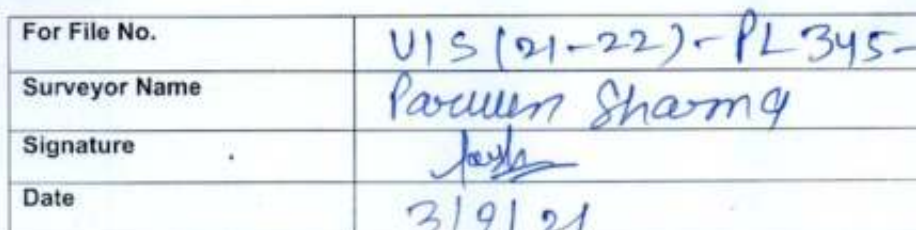 For File No. VIS (21-22) - PL345-
Surveyor Name Parveen Sharma
Signature
Date 3/9/21